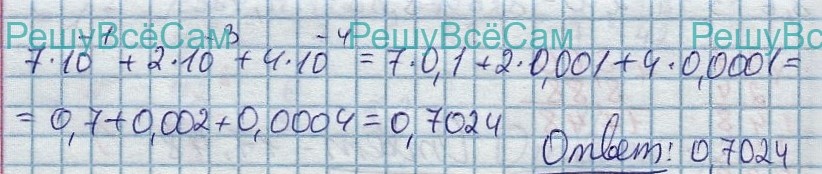 РешуВсёСам РешуВсёСам РешуВ
7·10⁻¹ + 2·10⁻³ + 4·10⁻⁴ = 7·0,1 + 2·0,001 + 4·0,0001 =
= 0,7 + 0,002 + 0,0004 = 0,7024
Ответ: 0,7024